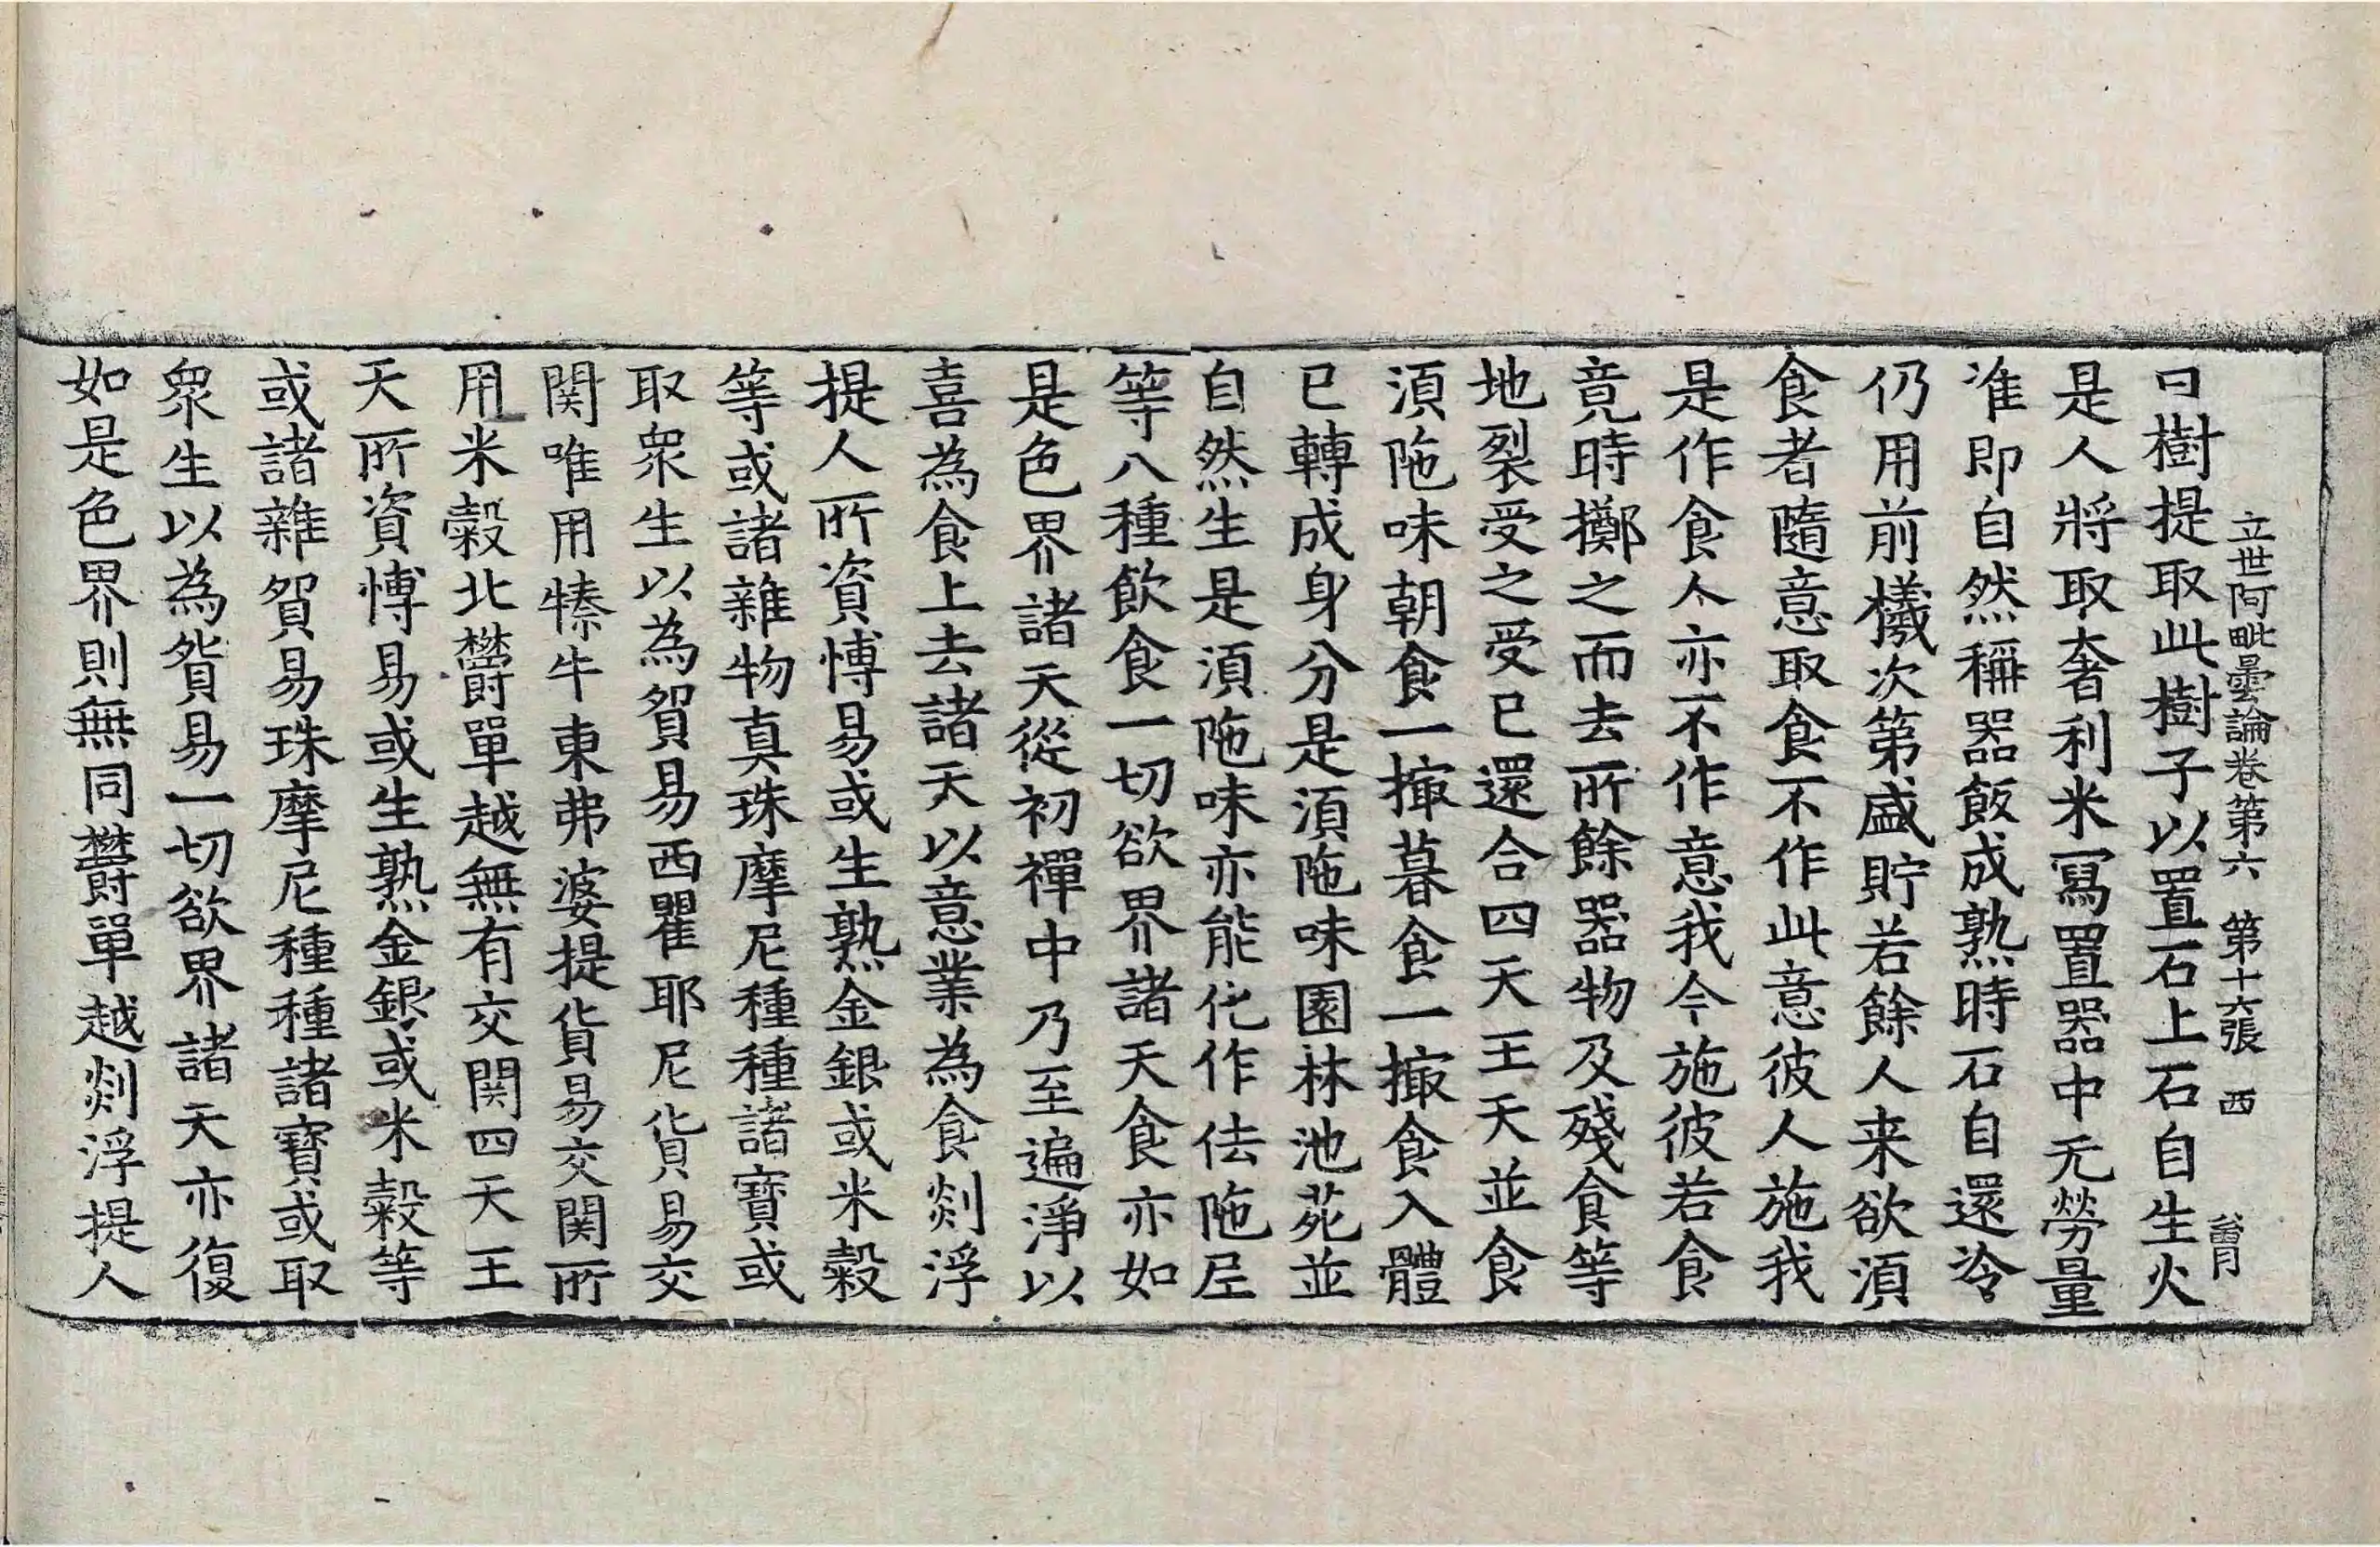 立世阿毗曇論卷第六 第十六張 西
曰樹提取此樹子以置石上石自生火
是人將取奢利米寫置器中无勞量
准即自然稱器飯成熟時石自還冷
仍用前檥次第盛貯若餘人来欲須
食者隨意取食不作此意彼人施我
是作食人亦不作意我今施彼若食
竟時擲之而去所餘器物及殘食等
地裂受之受已還合四天王天並食
須陁味朝食一撮暮食一撮食入體
已轉成身分是須陁味園林池苑並
自然生是須陁味亦能化作佉陁尼
等八種飲食一切欲界諸天食亦如
是色界諸天從初禪中乃至遍淨以
喜為食上去諸天以意業為食剡浮
提人所資愽易或生熟金銀或米穀
等或諸雜物真珠摩尼種種諸寶或
取衆生以為貿易西瞿耶尼貨易交
関唯用𤛓牛東弗婆提貨易交関所
用米穀北欝單越無有交関四天王
天所資愽易或生熟金銀或米穀等
或諸雜貿易珠摩尼種種諸寶或取
衆生以為貿易一切欲界諸天亦復
如是色界則無同欝單越剡浮提人